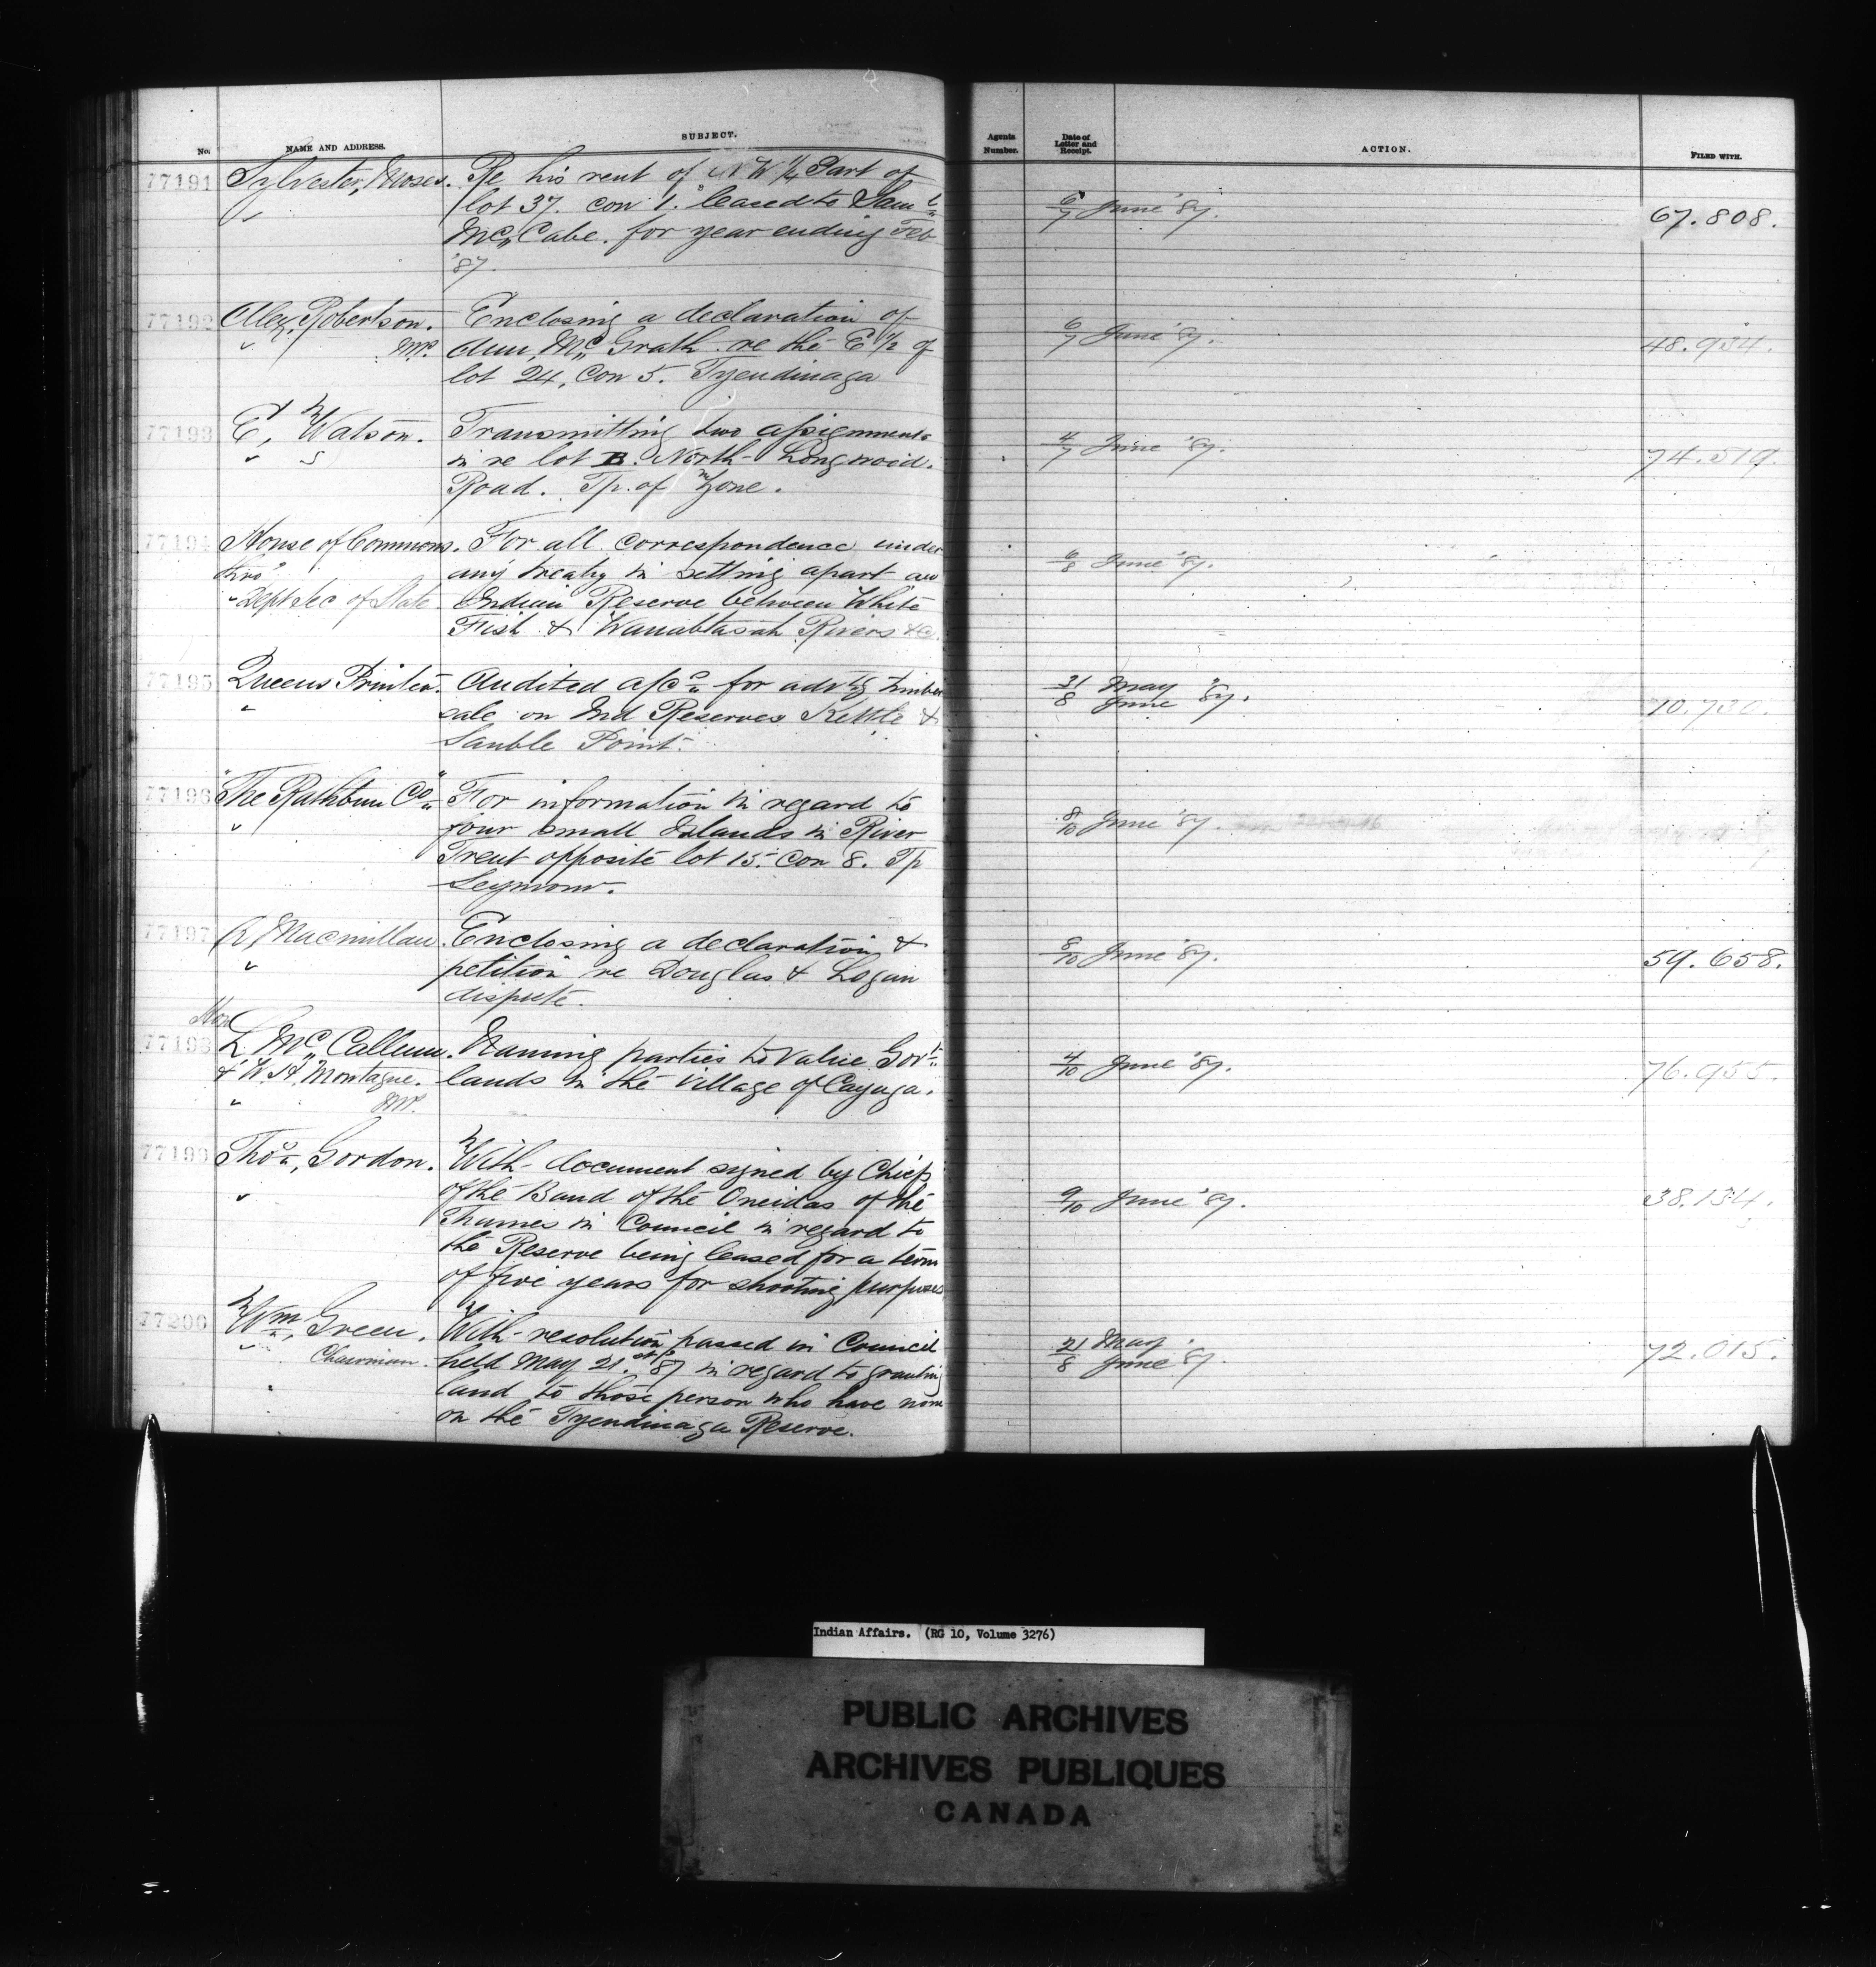 No. NAME AND ADDRESS. SUBJECT. Agents Number. Date of Letter and Receipt. ACTION. FILED WITH.
77191 Sylvester, Moses. Re his rent of N W 1/4 Part of
lot 37. con 1. leased to Saml
McCabe. for year ending Feb
'87.
6/7 June '87. 67.808.
77192 Alex, Robertson. Enclosing a declaration of
MP. Ann, McGrath re the E 1/2 of
lot 24, Con 5. Tyendinaga
6/7 June '87. 48.934.
77193 E, Watson. Transmitting two assignments
in re lot B. North Longwood.
Road. Tp. of Zone.
4/7 June '87. 74.519.
77194 House of Commons. For all correspondence under
thro" any treaty in setting apart an
Dept Sec of State. Indian Reserve between White
Fish & Wanabtasah Rivers &c.
6/8 June '87.
77195 Queens Printer. Audited a/cs for advtg timber
sale, on Ind Reserves Kettle &
Sauble Point.
31/8 May June '87. 70.730.
77196 "The Rathbun Co" For information in regard to
four small Islands in River
Trent opposite lot 15. Con 8. Tp
Seymour.
8/10 June '87.
77197 Macmillan. Enclosing a declaration &
petition re Douglas & Logan
dispute.
8/10 June '87. 59.658.
Hon
77198 L. McCallum. Naming parties to value Govt
& W. H. Montague. lands in the Village of Cayuga.
MP.
4/10 June '87. 76.955.
77199 Thos, Gordon. With document signed by Chiefs
of the Band of the Oneidas of the
Thames in Council in regard to
the Reserve being leased for a term
of five years for shooting purposes
9/10 June '87. 38.134.
77200 Wm, Green. With resolution passed in Council
Chairman. held May 21.st '87 in regard to granting
land to those person who have none
on the Tyendinaga Reserve.
21/8 May June '87. 72.015.
Indian Affairs. (RG 10, Volume 3276)
PUBLIC ARCHIVES
ARCHIVES PUBLIQUES
CANADA